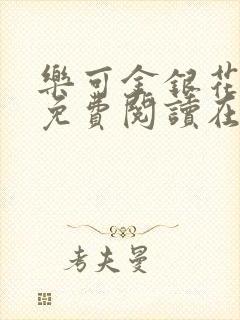 樂可金銀花
免費閱讀在
考夫曼